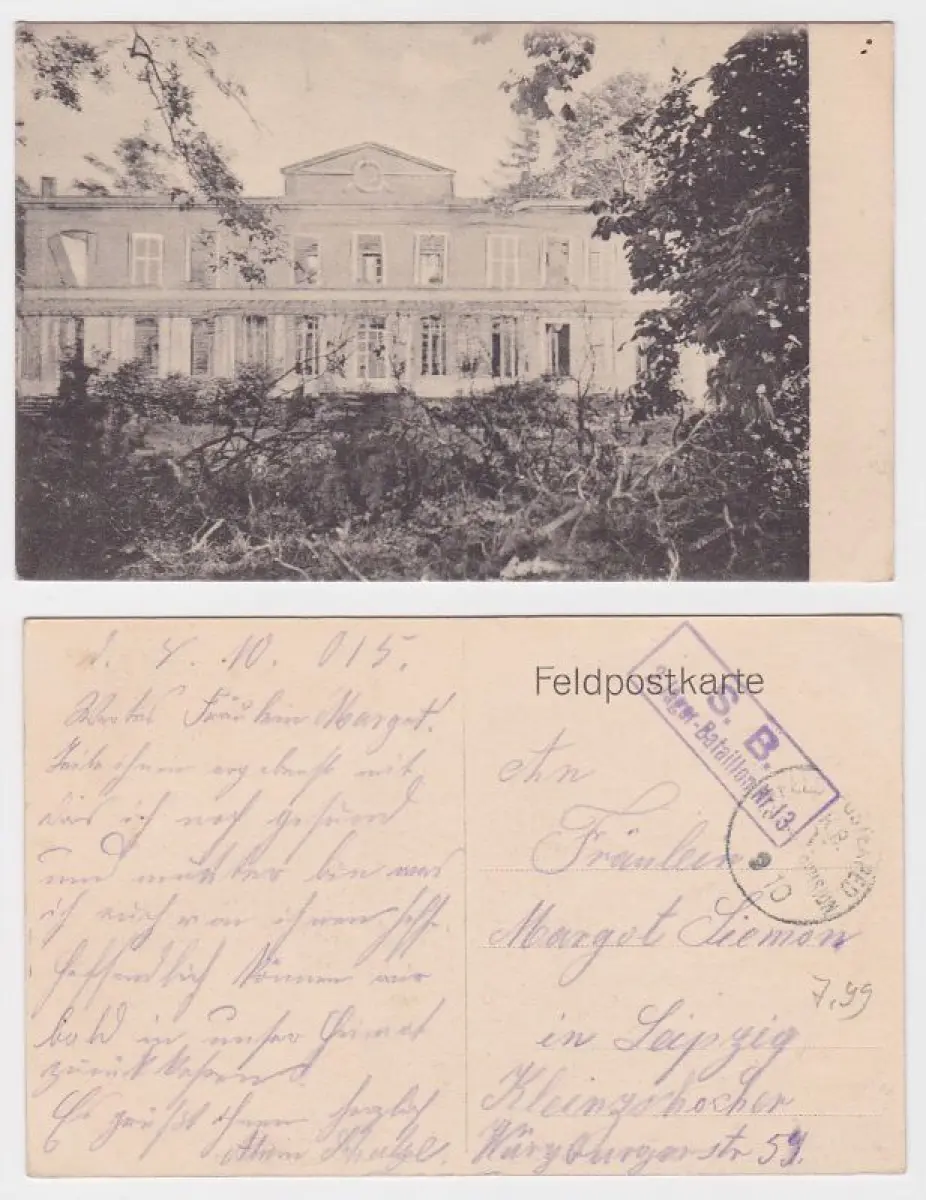 d. 4. 10. 015.
Wertes Fräulein Margot.
Teile ihnen ergebenst mit
das ich noch gesund
und munter bin was
ich auch von ihnen hoffe.
hoffendlich können wir
bald in unser Heimat
zurück kehren.
Es grüßt ihnen herzlich
Feldpostkarte
S. B.
Jäger-Bataillon Nr. 13
10
An
Fräulein
Margot Siemon
in Leipzig
Kleinzschocher
Würzburgerstr 59.
7,99